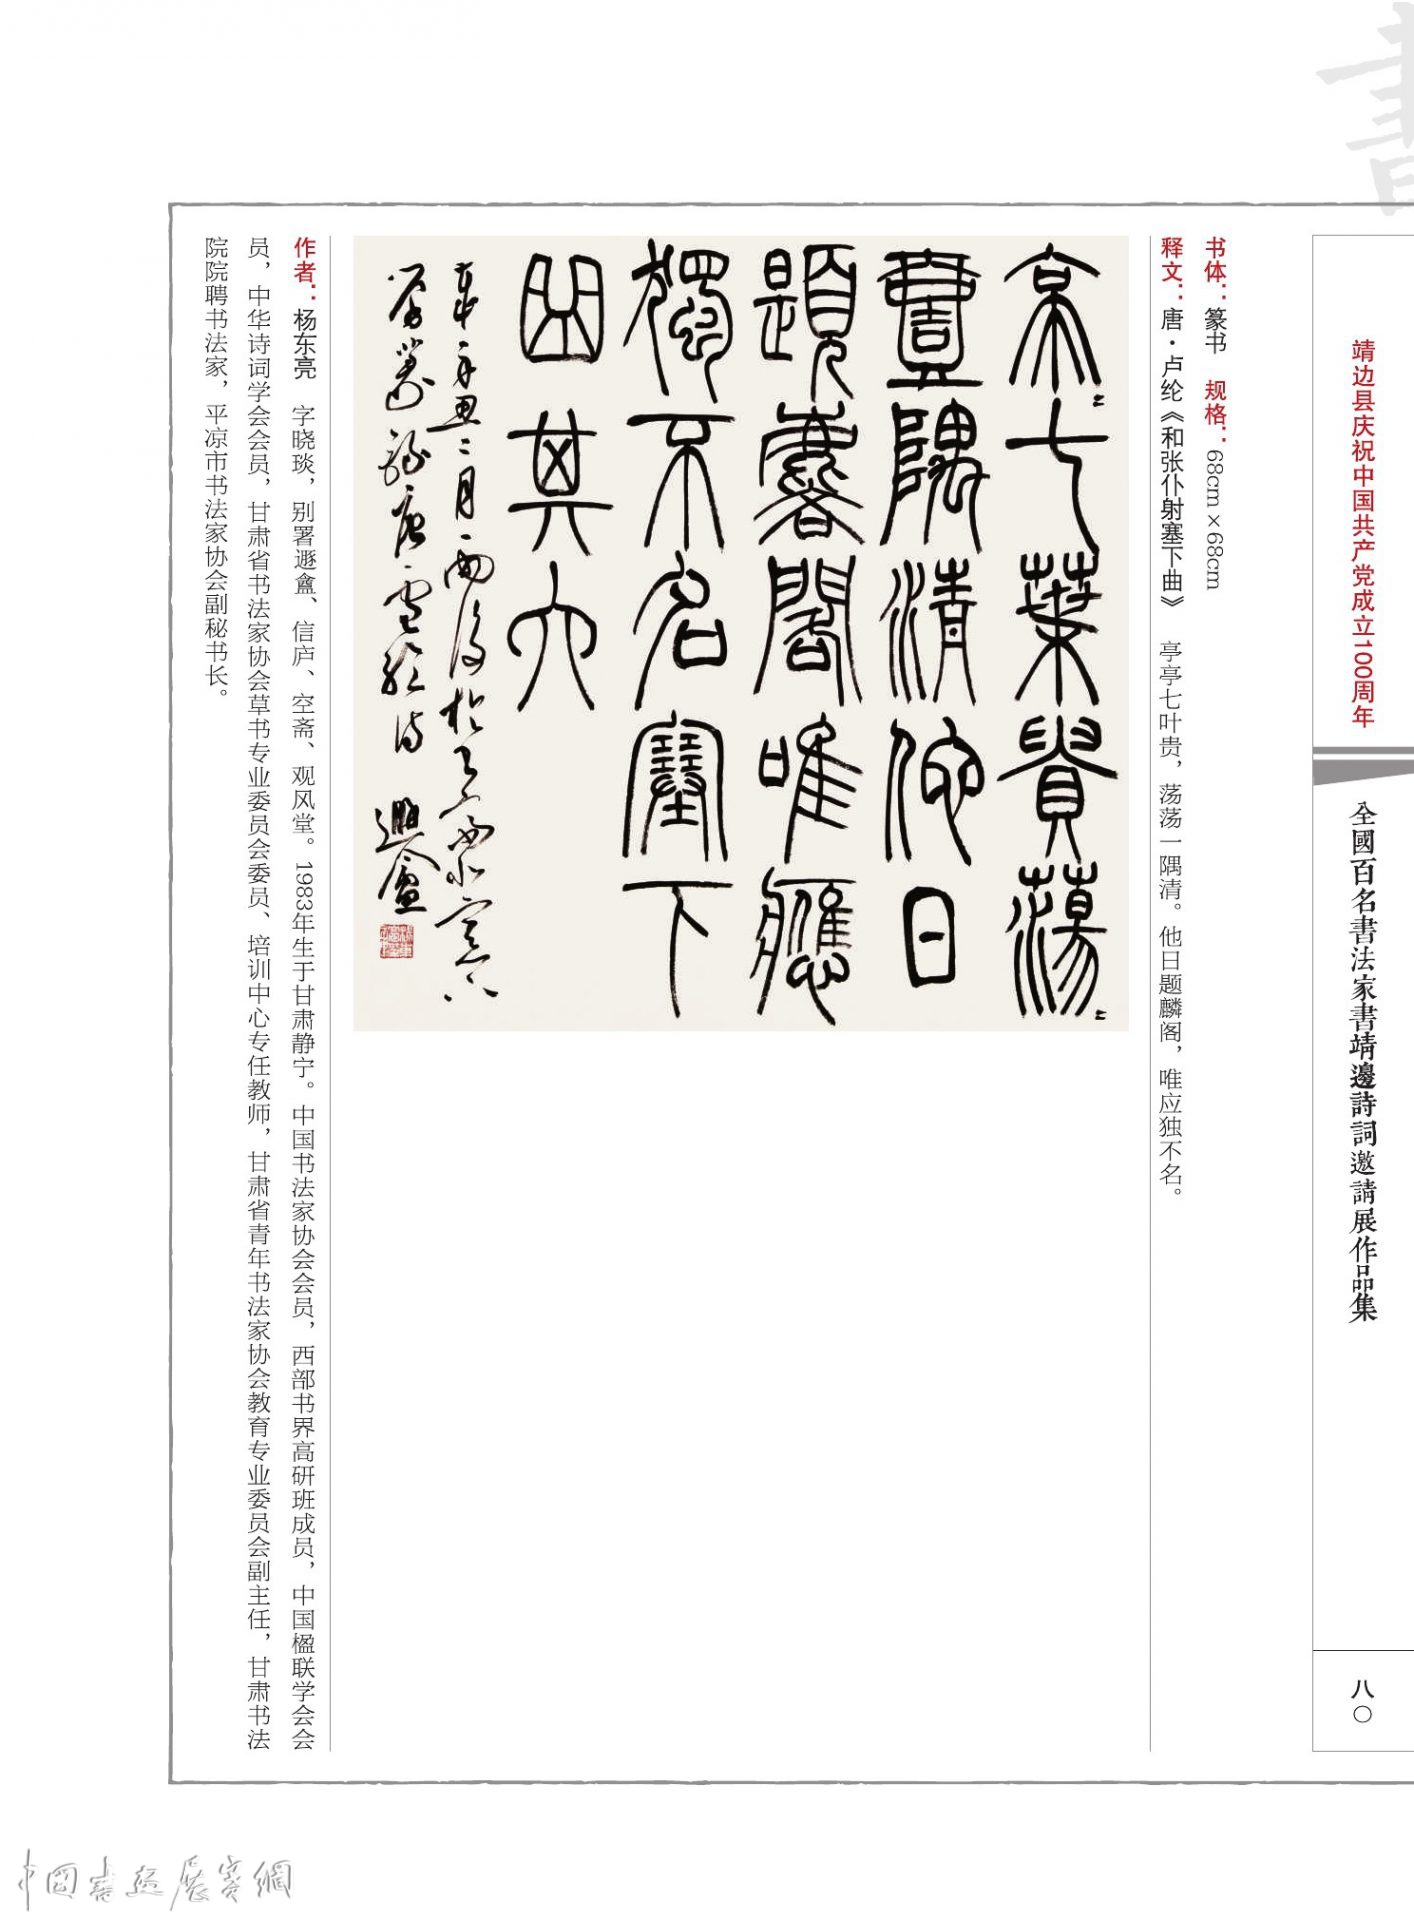 書
靖边县庆祝中国共产党成立100周年
全國百名書法家書靖邊詩詞邀請展作品集
八〇
书体：篆书　规格：68cm×68cm
释文：唐·卢纶《和张仆射塞下曲》　亭亭七叶贵，荡荡一隅清。他日题麟阁，唯应独不名。
亭〻七葉貴蕩〻
壹隅清佗日
題麐閣唯應
獨不名塞下
曲其六
辛丑二月雨後於
詩 遯盦
作者：杨东亮　字晓琰，别署遯盦、信庐、空斋、观风堂。1983年生于甘肃静宁。中国书法家协会会员，西部书界高研班成员，中国楹联学会会
员，中华诗词学会会员，甘肃省书法家协会草书专业委员会委员、培训中心专任教师，甘肃省青年书法家协会教育专业委员会副主任，甘肃书法
院院聘书法家，平凉市书法家协会副秘书长。
中國書画展賽網